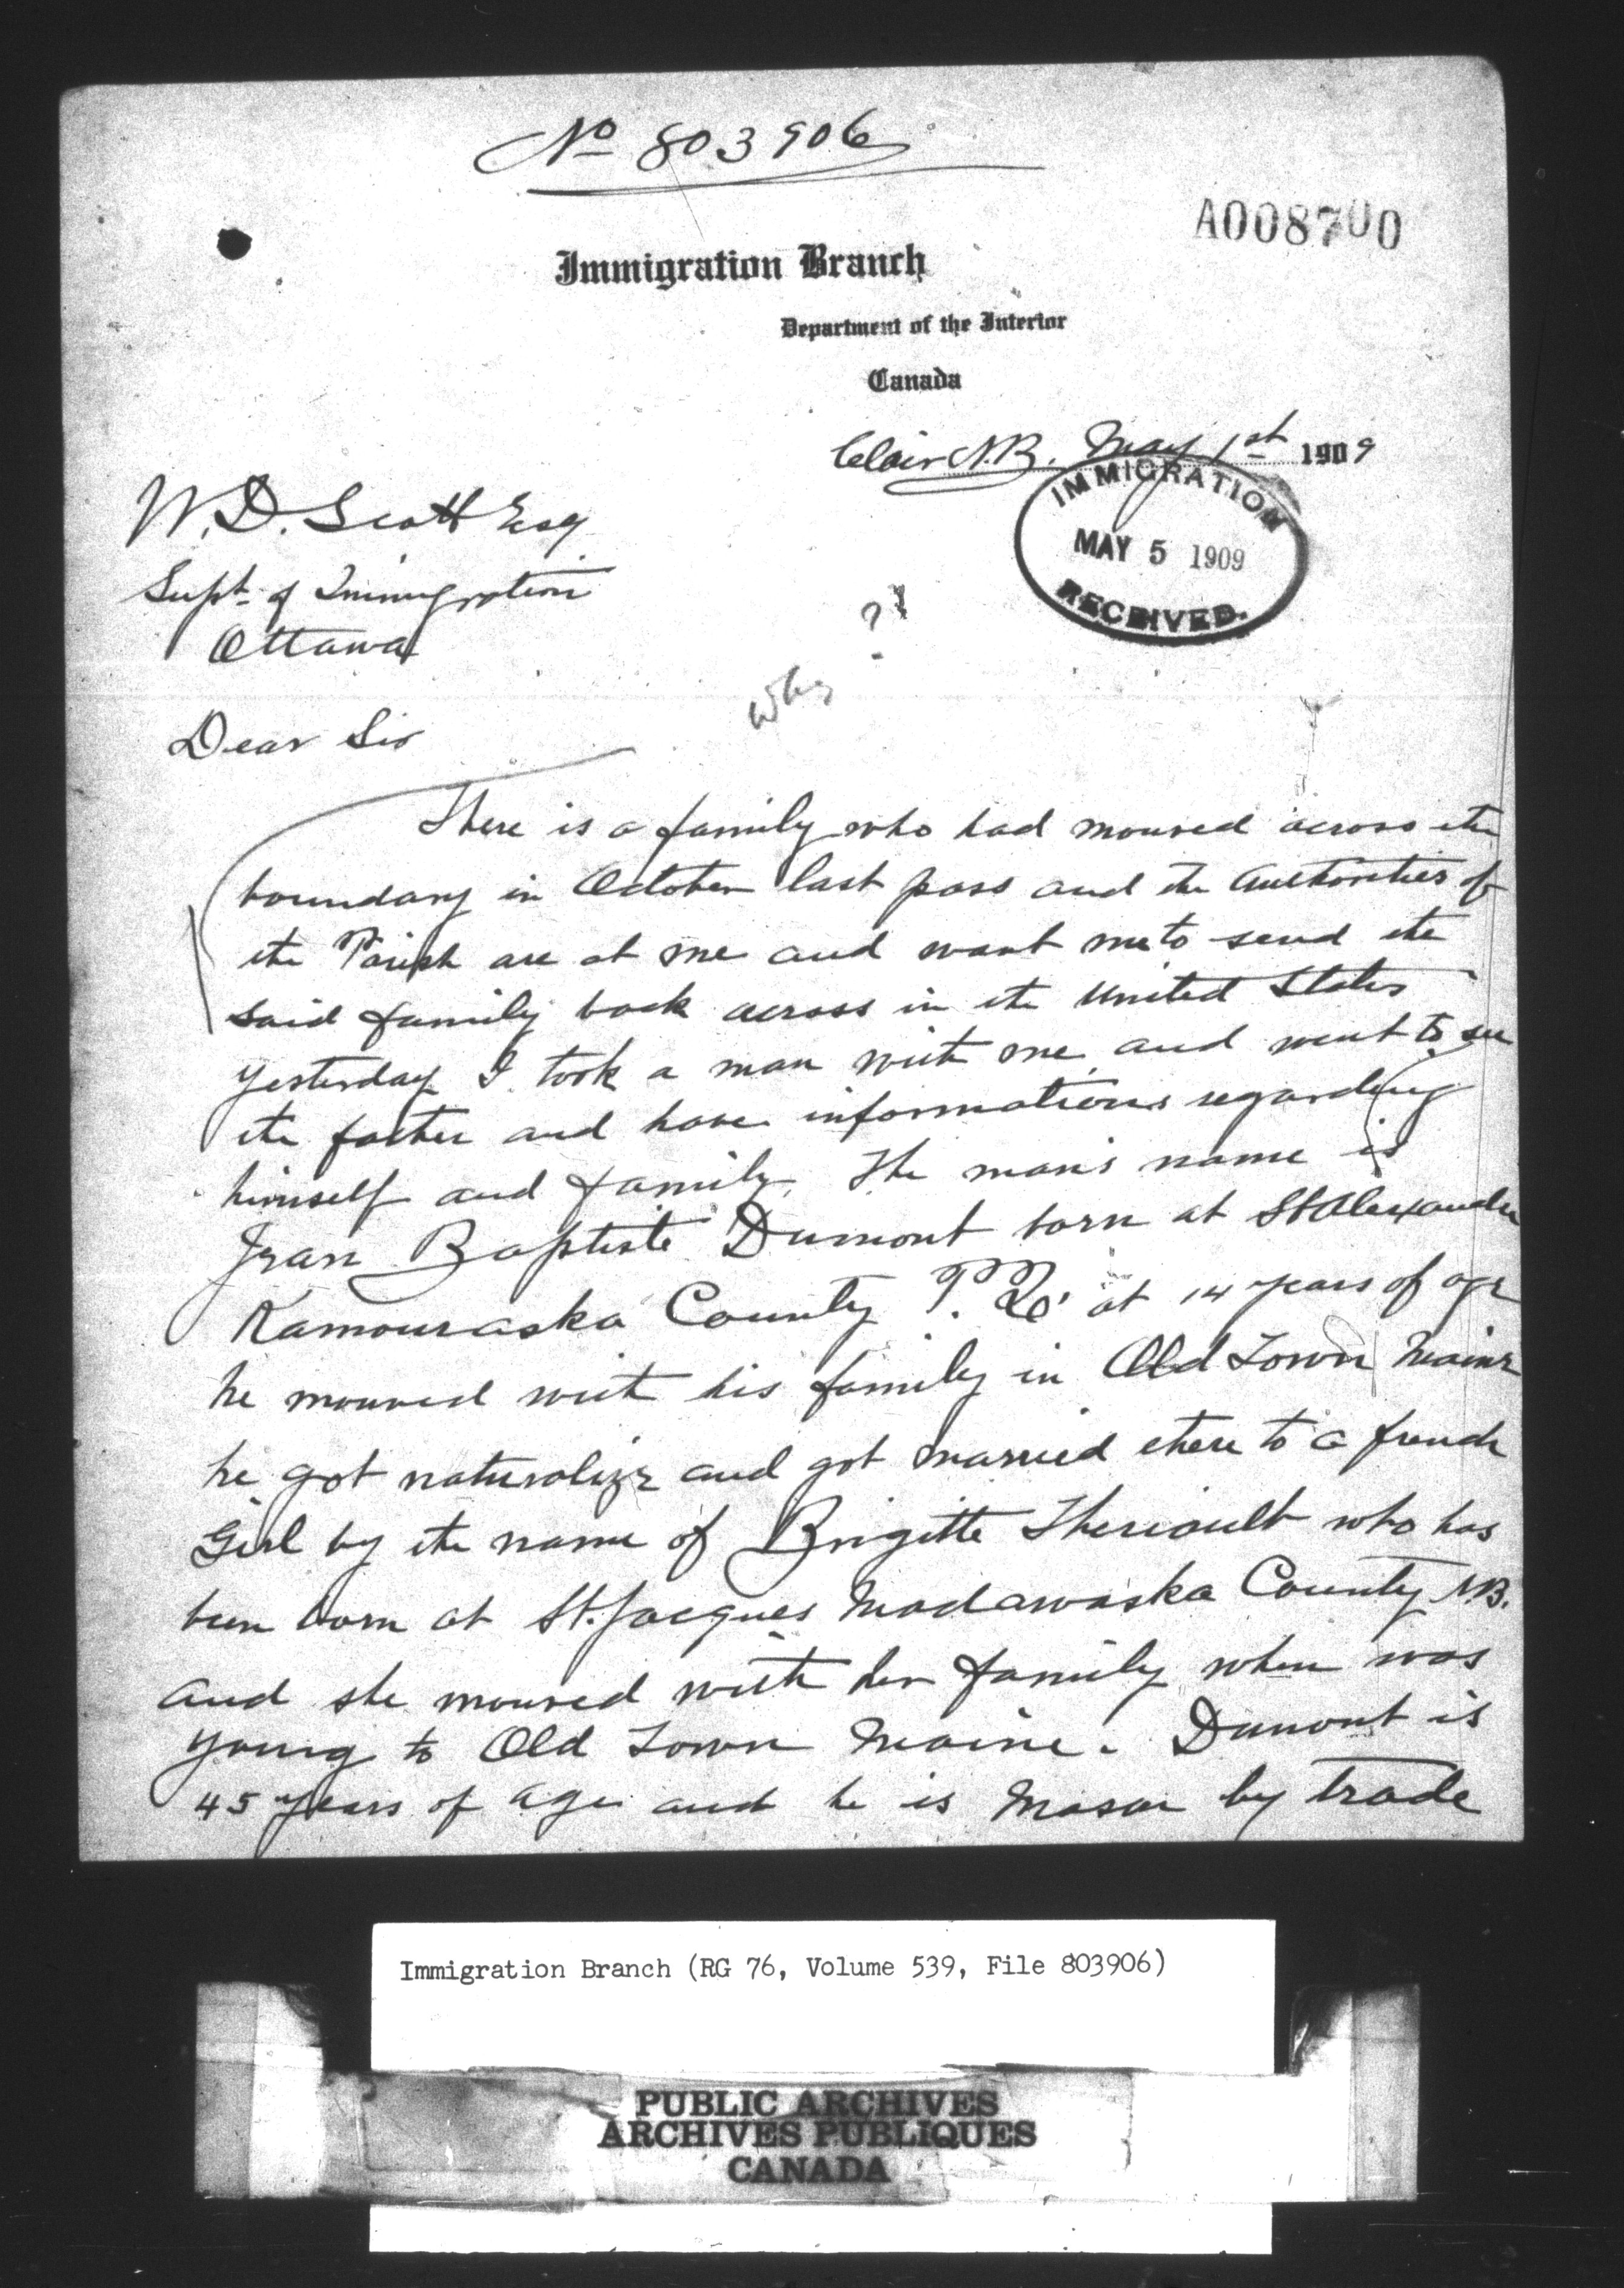 No 803906
A008700
Immigration Branch
Department of the Interior
Canada
Clair N.B. May 1st 1909
IMMIGRATION
MAY 5 1909
RECEIVED.
W. D. Scott Esq
Supt. of Immigration
Ottawa
why ?
Dear Sir
There is a family who had mouved across the
boundary in October last pass and the Authorities of
the Parish are at me and want me to send the
said family back across in the United States
yesterday I took a man with me and went to see
the father and have informations regarding
himself and family. The man's name is
Jean Baptiste Dumont born at St Alexander
Kamouraska County P.Q. at 14 years of age
he mouved with his family in Old Town Maine
he got naturalize and got married there to a french
Girl by the name of Brigitte Theriault who has
been born at St. Jacques Madawaska County N.B.
and she mouved with her family when was
young to Old Town Maine. Dumont is
45 years of age and he is Mason by trade
Immigration Branch (RG 76, Volume 539, File 803906)
PUBLIC ARCHIVES
ARCHIVES PUBLIQUES
CANADA